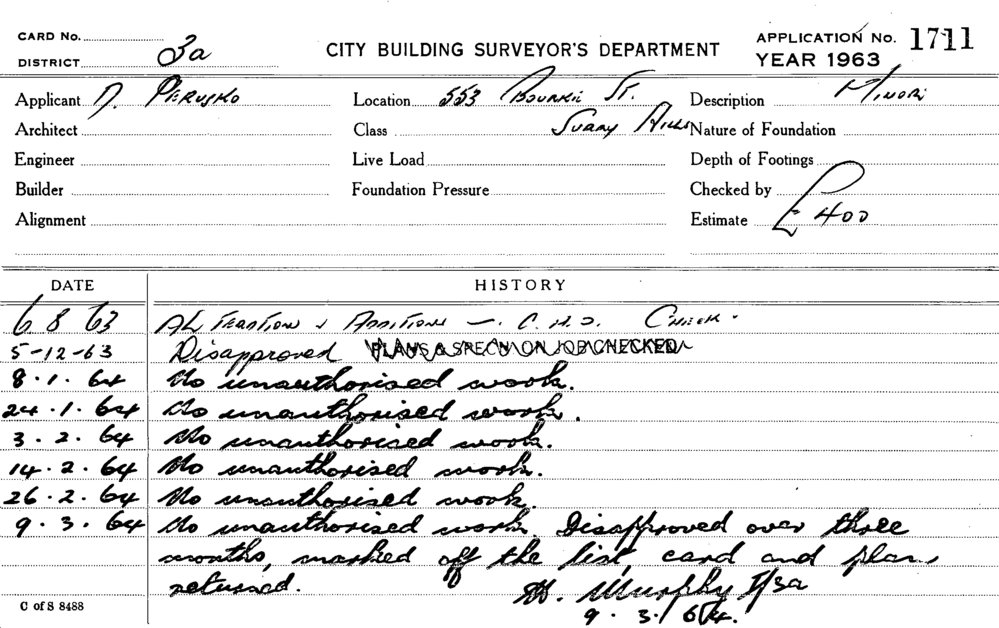 CARD No.
DISTRICT 3a
CITY BUILDING SURVEYOR'S DEPARTMENT
APPLICATION No. 1711
YEAR 1963
Applicant D. PERUSKO
Location 553 BOURKE ST.
Description MINOR
Architect
Class SURRY HILLS
Nature of Foundation
Engineer
Live Load
Depth of Footings
Builder
Foundation Pressure
Checked by
Alignment
Estimate £400
DATE
HISTORY
6 8 63 ALTERATION & ADDITIONS — C.H.D. CHECK.
5-12-63 Disapproved PLANS & SPECN ON JOB CHECKED
8.1.64 No unauthorised work.
24.1.64 No unauthorised work.
3.2.64 No unauthorised work.
14.2.64 No unauthorised work.
26.2.64 No unauthorised work.
9.3.64 No unauthorised work. Disapproved over three
months, marked off the list, card and plans
returned.
Murphy I/3a
9.3.64.
C of S 8488